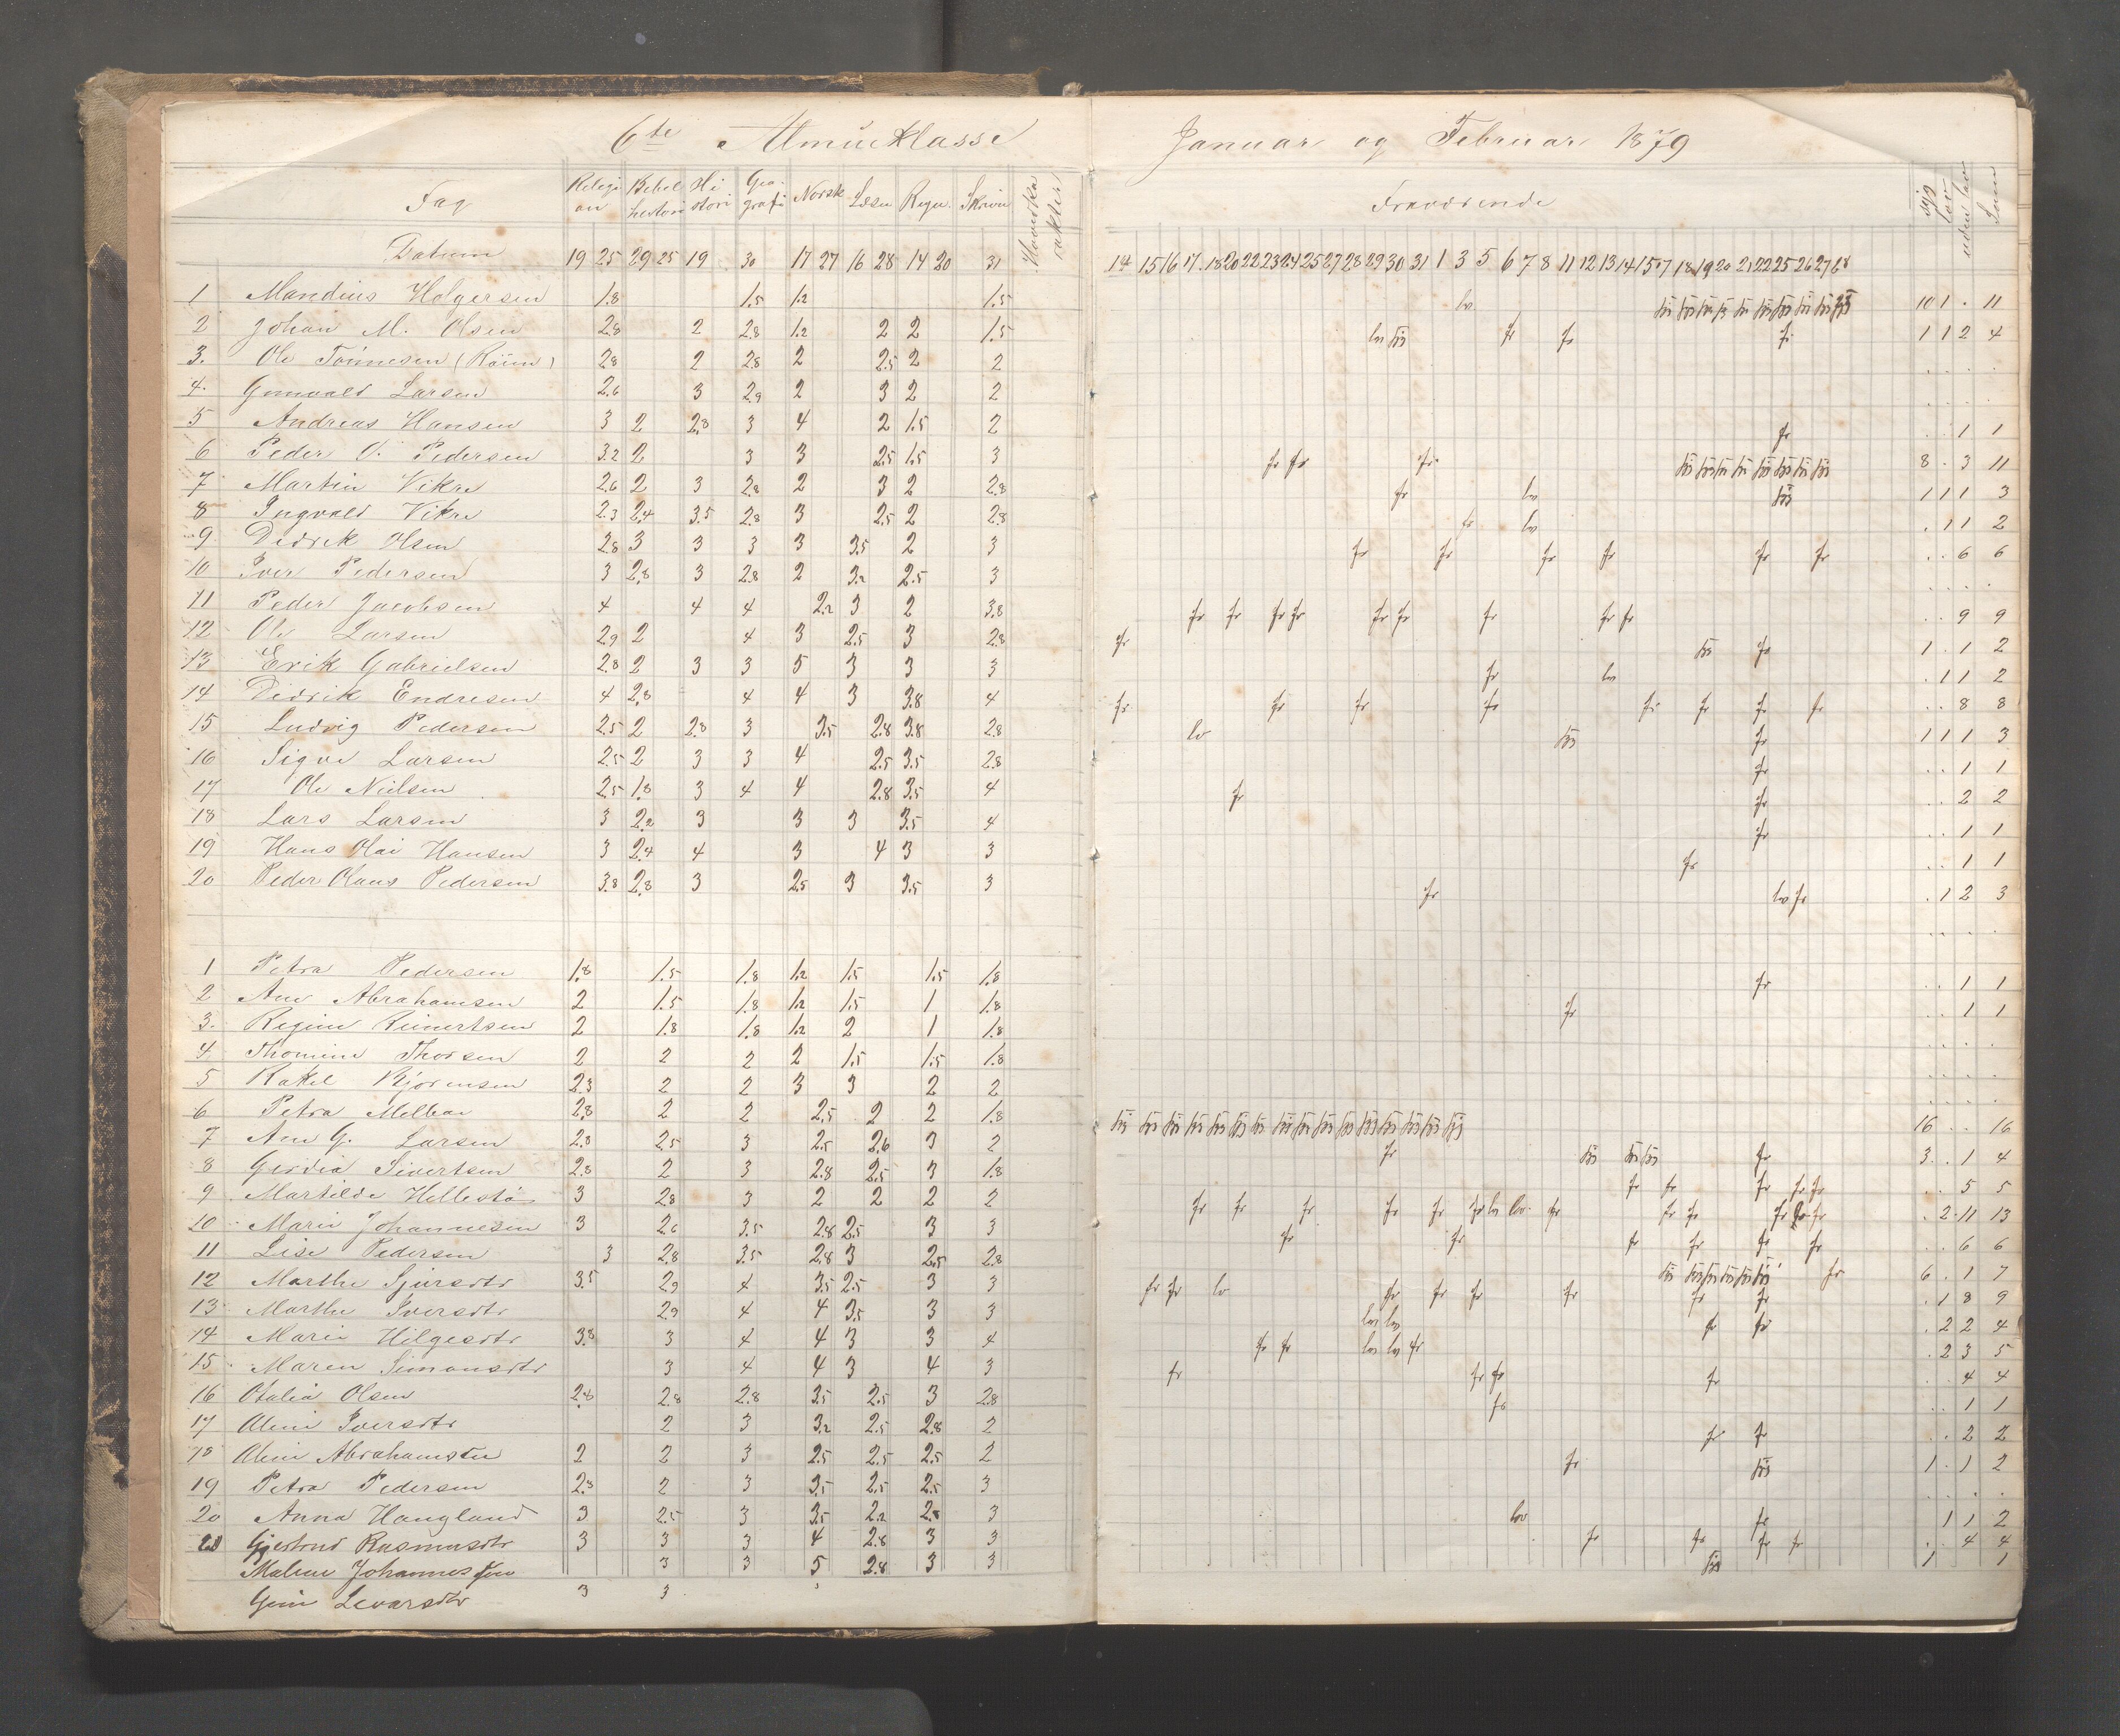 6te Almueklasse Januar og Februar 1879
Fag Religion Bibelhistori Histori Geografi Norsk Læsn Regn. Skrivn Hovedkarakter Fraværende syg lov uden lov Sum
Datum 19 25 29 25 19 30 17 27 16 28 14 20 31 14 15 16 17 18 20 22 23 24 25 27 28 29 30 31 1 3 5 6 7 8 11 12 13 14 15 17 18 19 20 21 22 25 26 27 28
1 Mandius Holgersen 1.8 1.5 1.2 1.5 lv 10 1 . 11
2 Johan M. Olsen 2.8 2 2.8 1.2 2 2 1.5 fr fr fr 1 1 2 4
3. Ole Tönnesen 2.8 2 2.8 2 2.5 2 2
4. Gunvald Larsen 2.6 3 2.9 2 3 2 2
5 Andreas Hansen 3 2 2.8 3 4 2 1.5 2 fr 1 1
6 Peder O. Pedersen 3.2 2 3 3 2.5 1.5 3 fr fr fr 8 . 3 11
7 Martin Vikre 2.6 2 3 2.8 2 3 2 2.8 fr lv 1 1 1 3
8 Ingvald Vikre 2.3 2.4 3.5 2.8 3 2.5 2 2.8 fr lv . 1 1 2
9. Didrik Olsen 2.8 3 3 3 3 3.5 2 3 fr fr fr fr fr fr . . 6 6
10 Iver Pedersen 3 2.8 3 2.8 2 3.2 2.5 3
11 Peder Jacobsen 4 4 4 2.2 3 2 3.8 fr fr fr fr fr fr fr fr fr . . 9 9
12 Ole Larsen 2.9 2 4 3 2.5 3 2.8 fr fr 1 . 1 2
13 Erik Gabrielsen 2.8 2 3 3 5 3 3 3 fr lv . 1 1 2
14 Didrik Endresen 4 2.8 4 4 3 3.8 4 fr fr fr fr fr fr fr fr . . 8 8
15 Ludvig Pedersen 2.5 2 2.8 3 3.5 2.8 3.8 2.8 lv fr 1 1 1 3
16 Sigve Larsen 2.5 2 3 3 4 2.5 3.5 2.8 fr . . 1 1
17 Ole Nielsen 2.5 1.8 3 4 4 2.8 3.5 4 fr fr . . 2 2
18 Lars Larsen 3 2.2 3 3 3 3.5 4 fr . . 1 1
19 Hans Olai Hansen 3 2.4 4 3 4 3 3 fr . . 1 1
20 Peder Olaus Pedersen 3.8 2.8 3 2.5 3 3.5 3 fr lv fr . 1 2 3
1 Petra Pedersen 1.8 1.5 1.8 1.2 1.5 1.5 1.8 fr . . 1 1
2 Ane Abrahamsen 2 1.5 1.8 1.2 1.5 1 1.8 fr . . 1 1
3. Regine Reinertsen 2 1.8 1.8 1.2 2 1 1.8
4 Thomine Thorsen 2 2 2 2 1.5 1.5 1.8
5 Rakel Bjørensen 2.3 2 2 3 3 2 2
6 Petra Melbøe 2.8 2 2 2.5 2 2 1.8 16 . . 16
7 Ane G. Larsen 2.8 2.5 3 2.5 2.6 3 2 fr fr 3 . 1 4
8 Gerdia Sivertsen 2.8 2 3 2.8 2.5 3 1.8 fr fr fr fr fr . . 5 5
9 Martilde Hellestö 3 2.8 3 2 2 2 2 fr fr fr fr fr fr lv lv fr fr fr fr fr fr . 2 11 13
10 Marie Johannesen 3 2.6 3.5 2.8 2.5 3 3 fr fr fr fr fr fr . . 6 6
11 Lise Pedersen 3 2.8 3.5 2.8 3 2.5 2.8 fr 6 . 1 7
12 Marthe Sjursdtr 3.5 2.9 4 3.5 2.5 3 3 fr fr lv fr fr fr fr fr fr . 1 8 9
13 Marthe Iversdtr 2.9 4 4 3.5 3 3 lv lv fr fr . 2 2 4
14 Marie Hilgesdtr 3.8 3 4 4 3 3 4 fr fr lv lv fr . 2 3 5
15 Maren Simonsdtr 3 4 4 3 4 3 fr fr fr fr . . 4 4
16 Otalia Olsen 2.8 2.8 2.8 3.5 2.5 3 2.8 fr . . 1 1
17 Oline Iversdtr 2 3 3.2 2.5 2.8 2 fr fr . . 2 2
18 Oline Abrahamsen 2 2 3 2.5 2.5 2.5 2 fr 1 . 1 2
19 Petra Pedersen 2.8 2 3 3.5 2.5 2.5 3
20 Anna Haugland 3 2.5 3 3.5 2.2 2.5 3 lv fr 1 1 2
Gjertrud Rasmusdtr 3 3 3 4 2.8 3 3 fr fr fr fr . . 4 4
Malene Johannessen 3 3 5 2.8 3 3 1 1
Levarsdtr 3 3